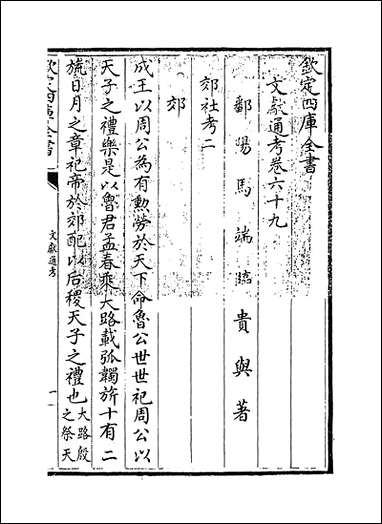 欽定四庫全書
文獻通考卷六十九
鄱陽馬端臨貴與著
郊社考二
郊
成王以周公為有勳勞於天下命魯公世世祀周公以
天子之禮樂是以魯君孟春乘大路載弧韣旂十有二
旒日月之章祀帝於郊配以后稷天子之禮也大路殷
之祭天
欽定四庫全書
文獻通考
一